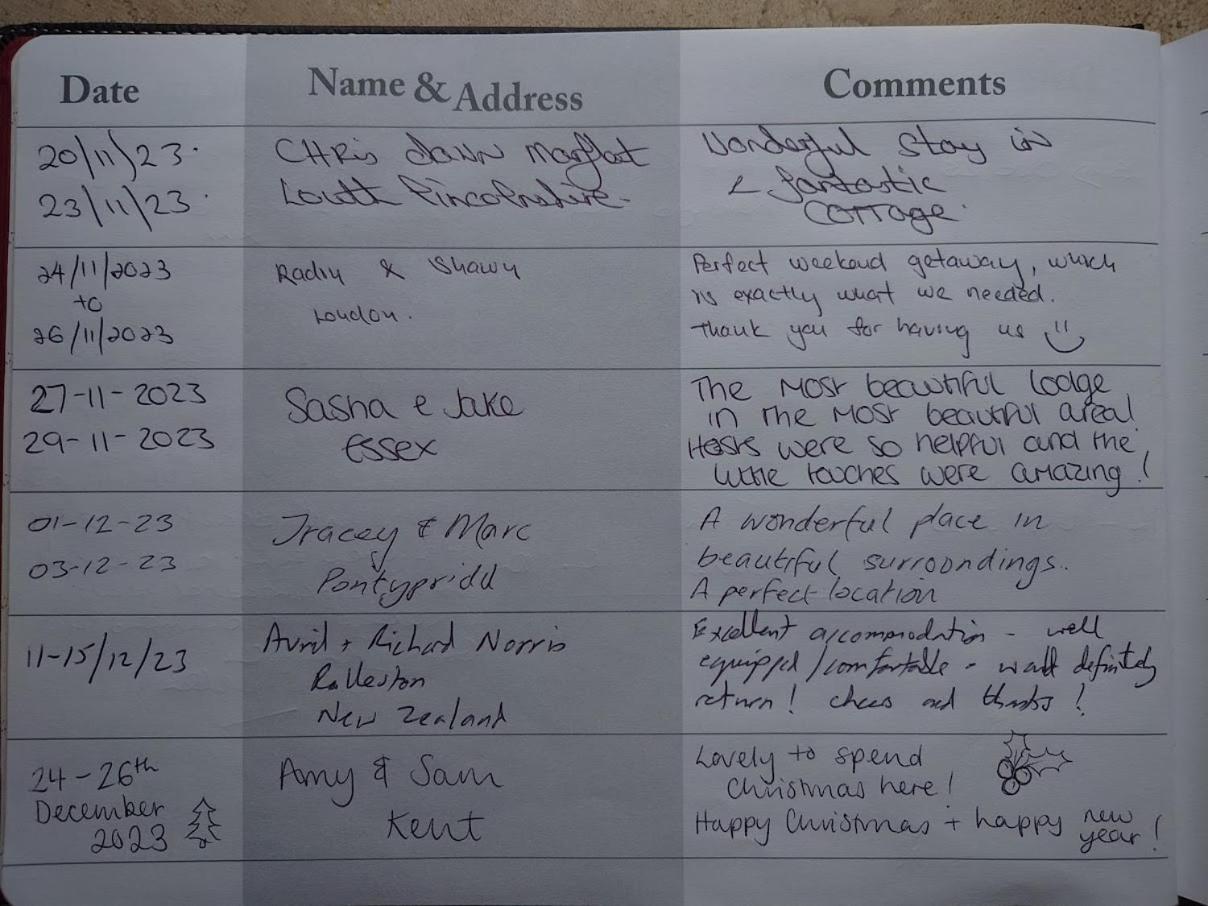 Date Name & Address Comments
20/11/23.
23/11/23.
CHRis dawn
Louth Lincolnshire.
Wonderful stay in
fantastic
COTTage.
24/11/2023
to
26/11/2023
& Shawn
London.
Perfect weekend getaway, which
is exactly what we needed.
Thank you for having us
27-11-2023
29-11-2023
Sasha e Jake
ESSEX
The MOST beautiful lodge
in The MOST beautiful area!
Hosts were so helpful and the
little touches were amazing!
01-12-23
03-12-23
Tracey & Marc
Pontypridd
A wonderful place in
beautiful surroondings..
A perfect location
11-15/12/23
Avril + Richard Norris
Rolleston
New Zealand
Excellent accommodation - well
equipped/comfortable - would definitely
return! cheers and thanks!
24-26th
December
2023
Amy & Sam
Kent
Lovely to spend
Christmas here!
Happy Christmas + happy new year!